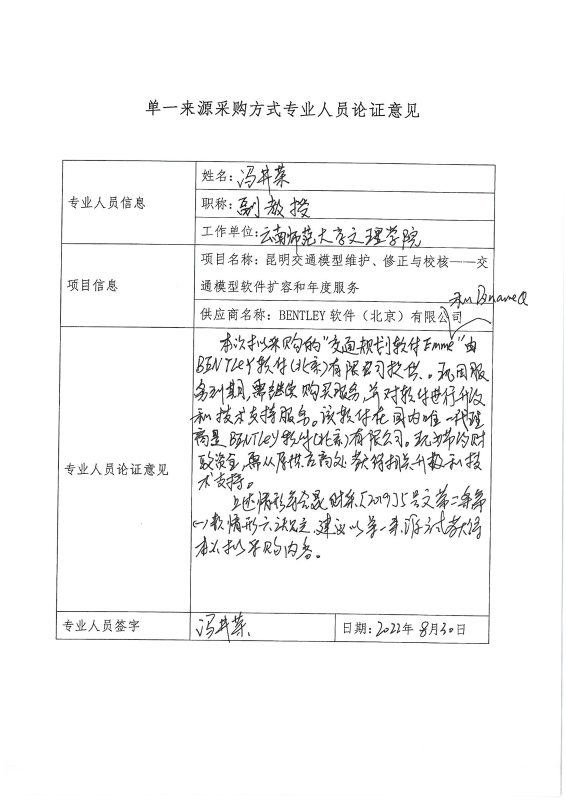 单一来源采购方式专业人员论证意见
专业人员信息
姓名：冯井荣
职称：副教授
工作单位：云南师范大学文理学院
项目信息
项目名称：昆明交通模型维护、修正与校核——交
通模型软件扩容和年度服务
供应商名称：BENTLEY 软件（北京）有限公司
和DynameQ
专业人员论证意见
本次拟采购的"交通规划软件Emme"由
BENTLEY软件(北京)有限公司提供。现因服
务到期，需继续购买服务，并对软件进行升级
和技术支持服务。该软件在国内唯一代理
商是BENTLEY软件(北京)有限公司。
财政资金，需从供应商处获得扩容升级和技
术支持。
上述情形符合昆财采〔2019〕5号文第二条第
(一)款情形 建议以单一来源方式获得
本次拟采购内容。
专业人员签字
冯井荣
日期：2022年8月30日